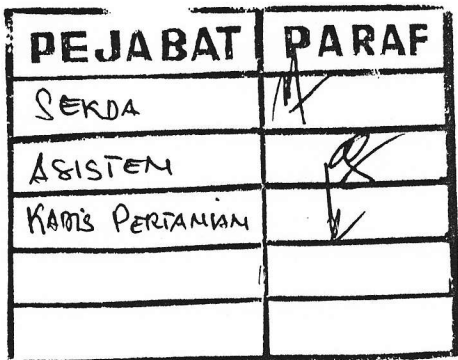 PEJABAT PARAF
SEKDA
ASISTEN
KADIS PERTANIAN